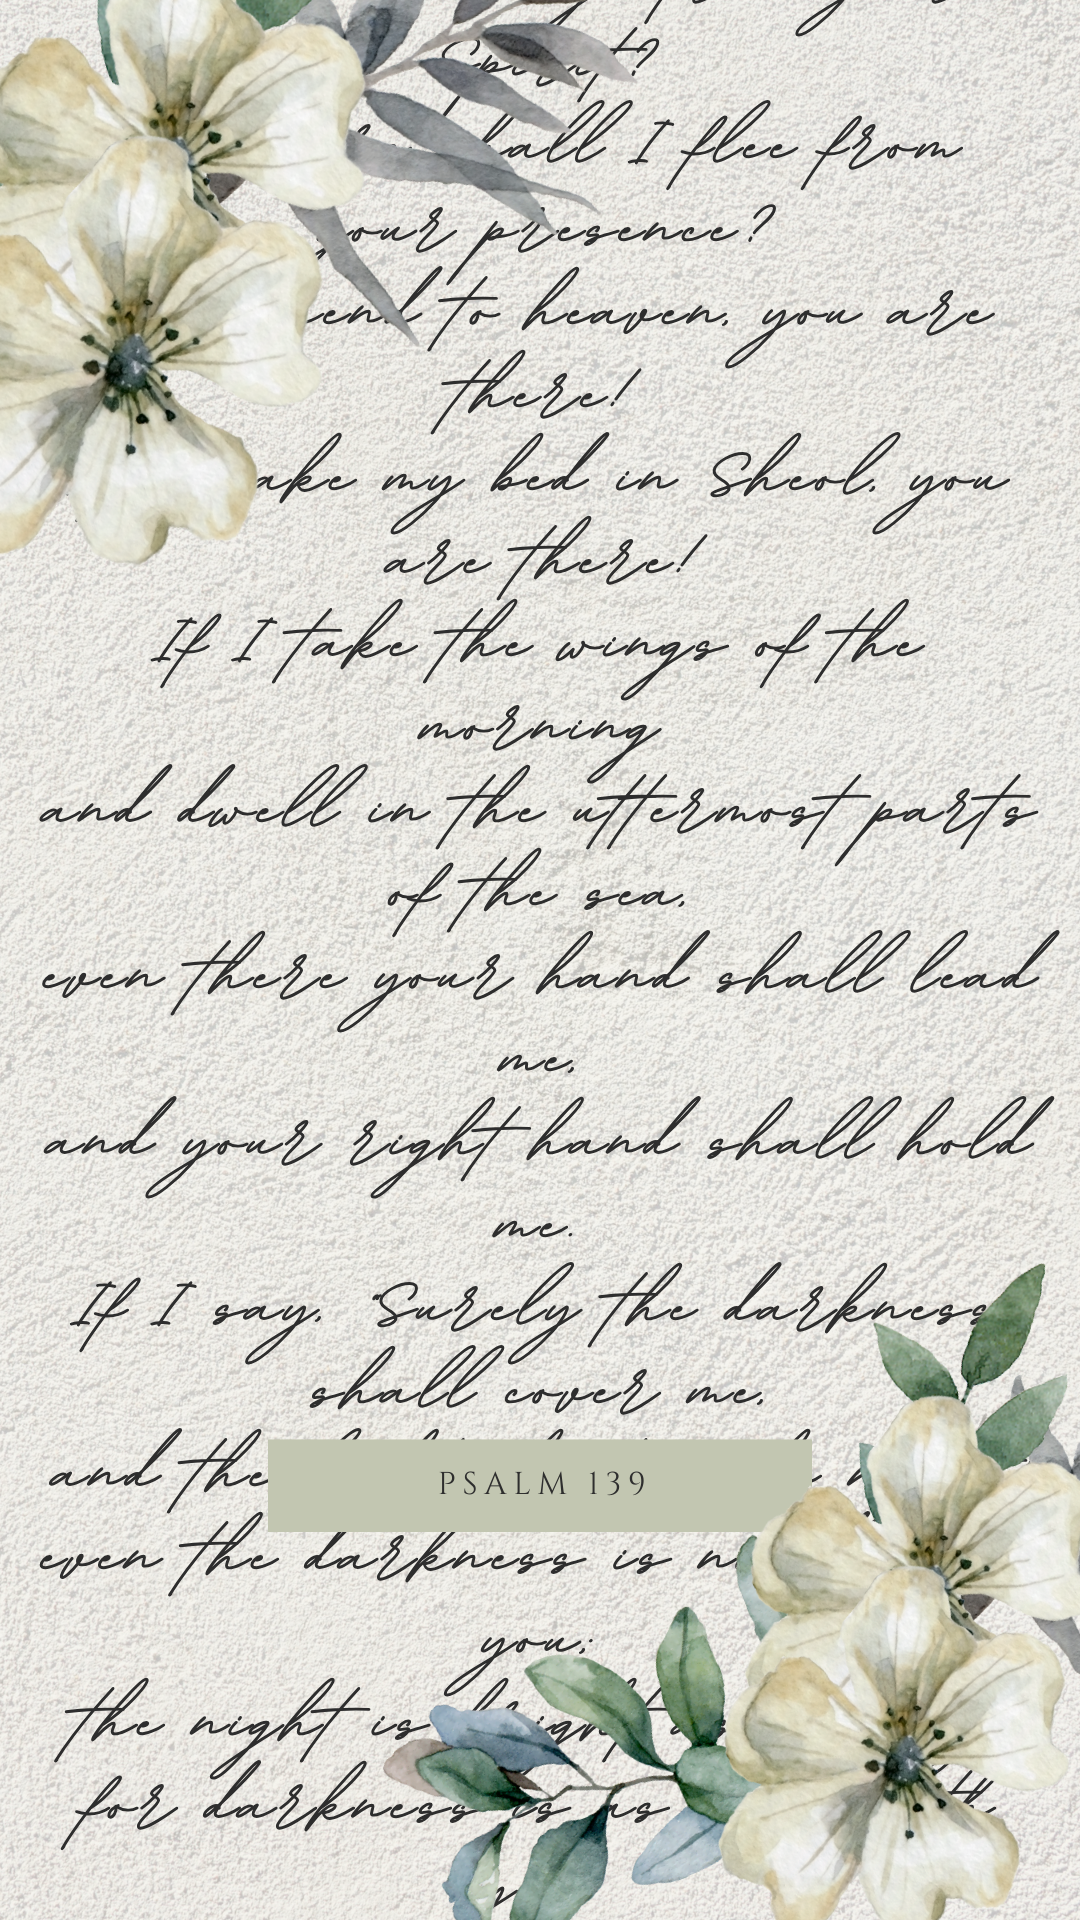 Spirit?
shall I flee from
your presence?
to heaven, you are
there!
my bed in Sheol, you
are there!
If I take the wings of the
morning
and dwell in the uttermost parts
of the sea,
even there your hand shall lead
me,
and your right hand shall hold
me.
If I say, "Surely the darkness
shall cover me,
and the
PSALM 139
even the darkness is
you;
the night is
for darkness is as